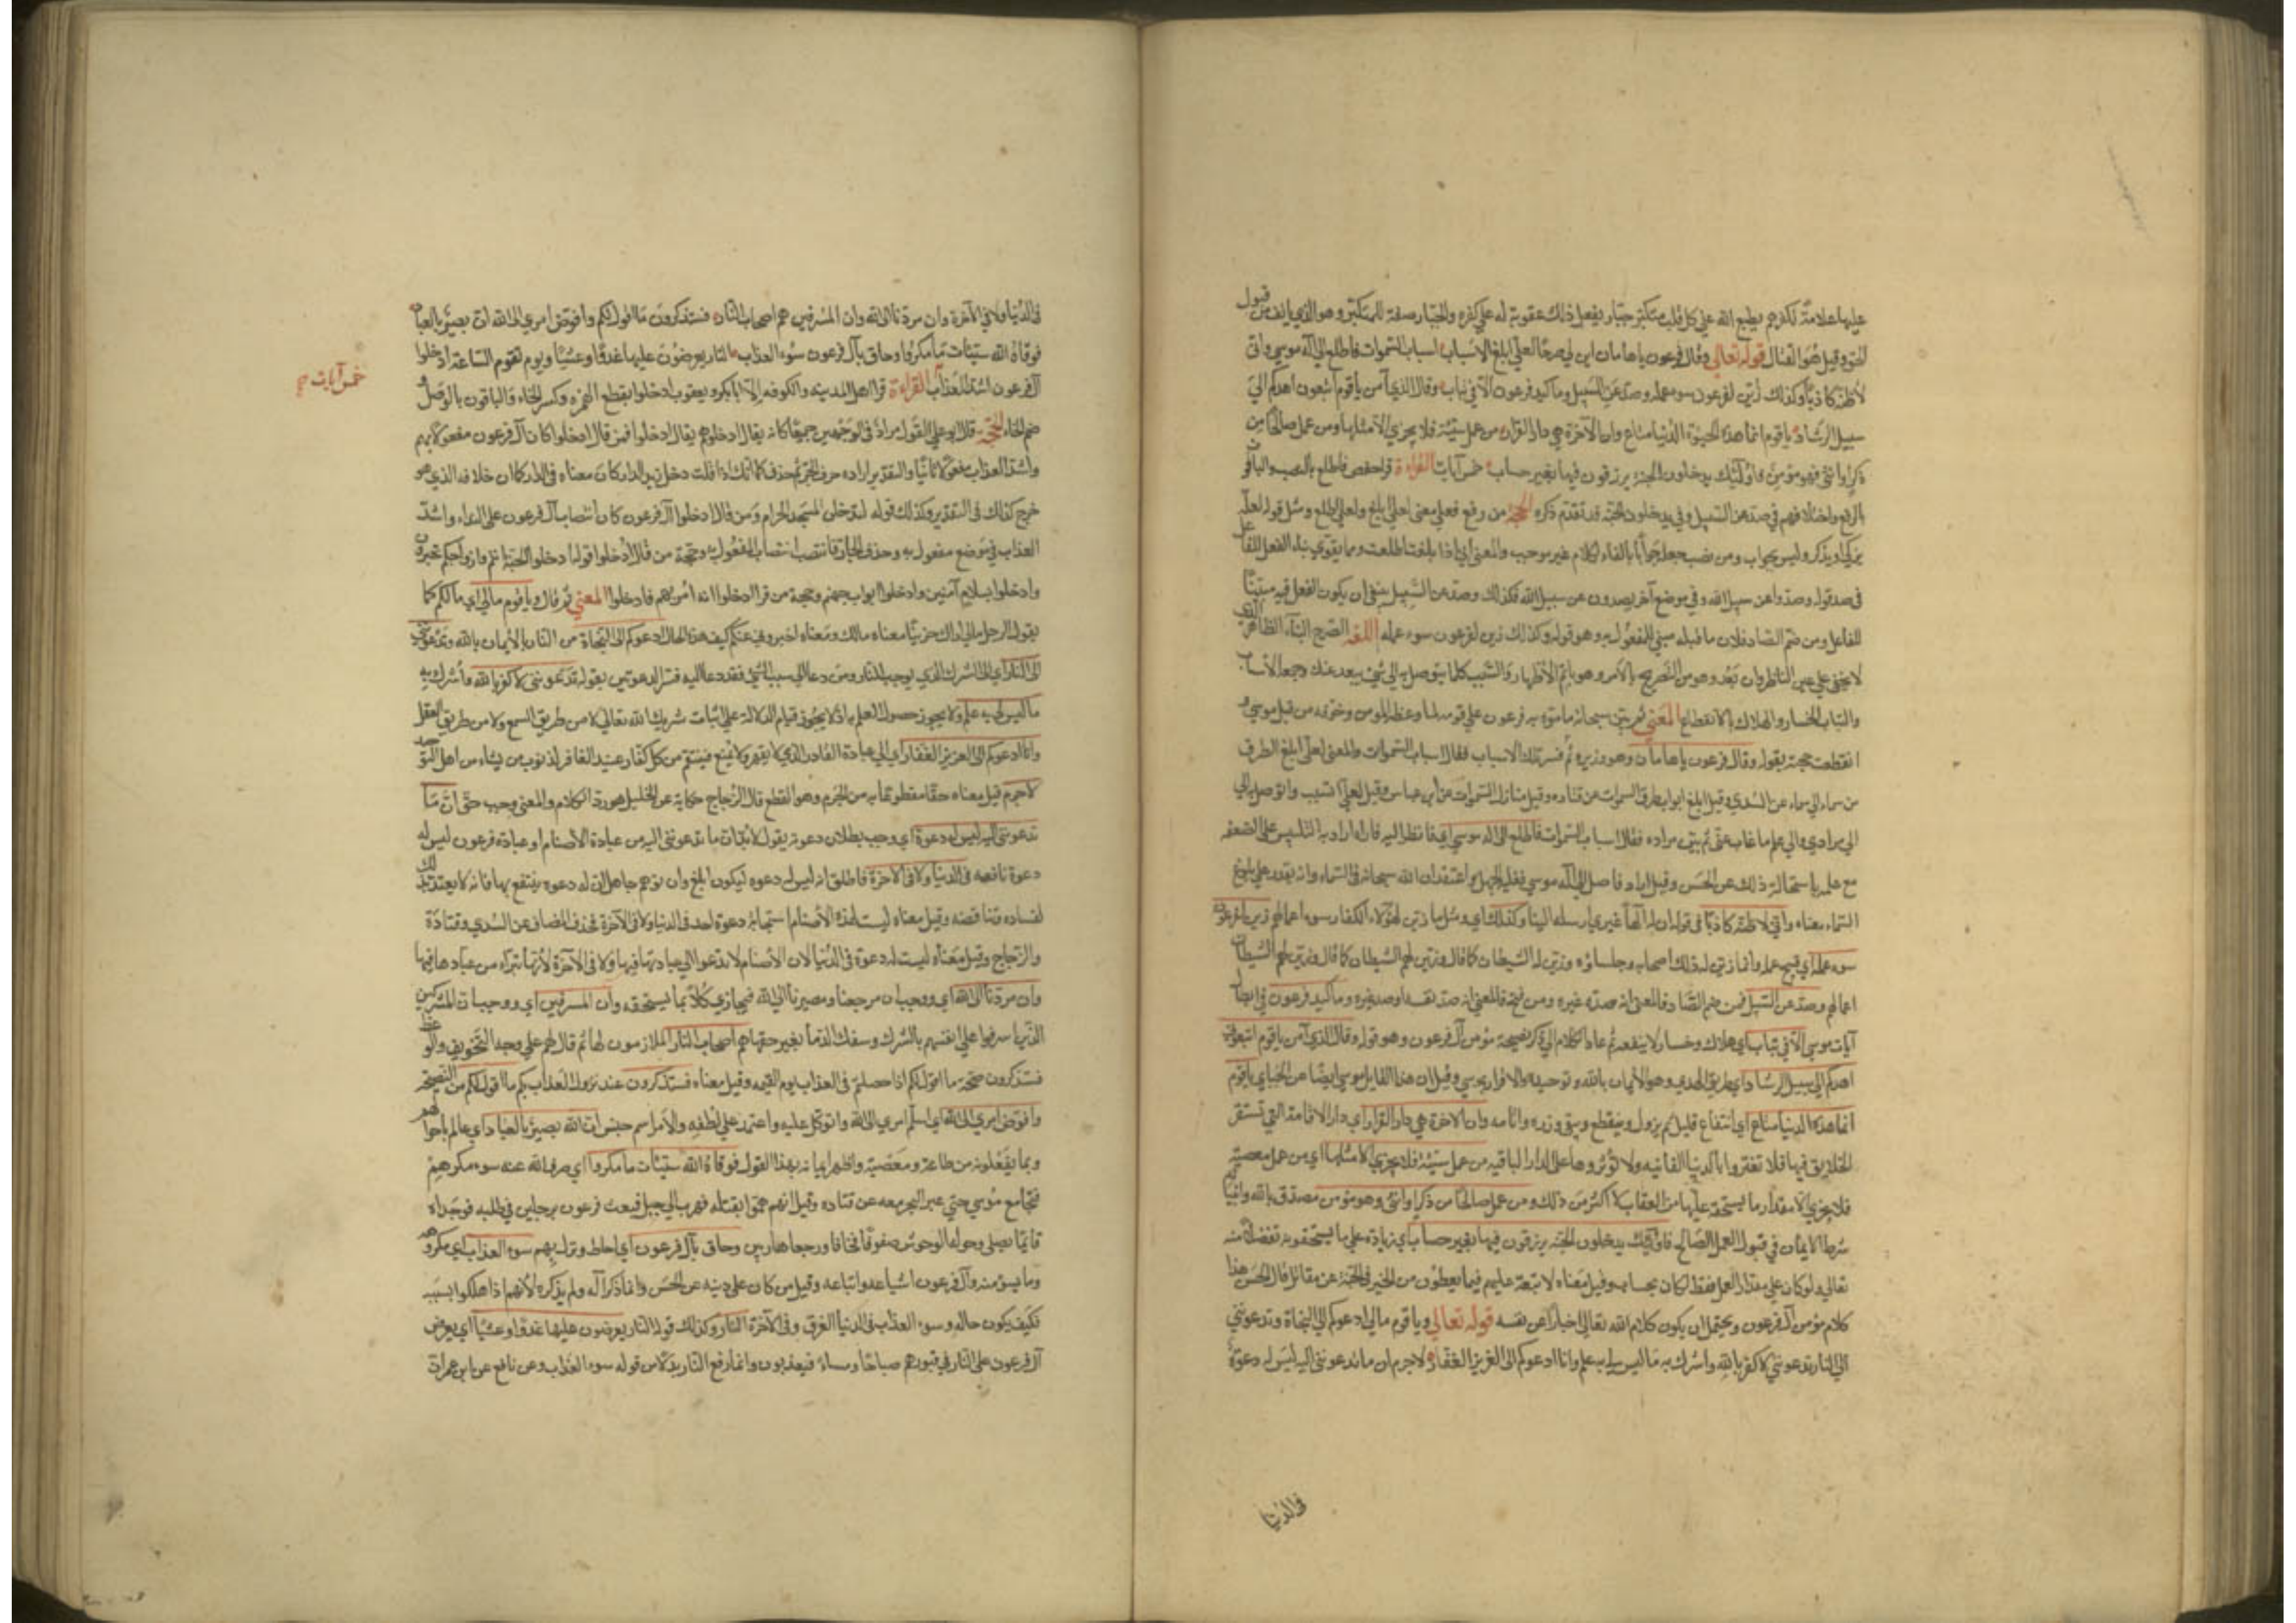 عليها علامة لكفرهم يطبع الله على كل قلب متكبر جبار يفعل ذلك عقوبة له على كفره والجبار صفة للمتكبر وهو الذي يانف من قبول
الحق وقيل هو القتال قوله تعالى وقال فرعون يا هامان ابن لي صرحا لعلي ابلغ الاسباب اسباب السموات فاطلع الى اله موسى واني
لاظنه كاذبا وكذلك زين لفرعون سوء عمله وصد عن السبيل وما كيد فرعون الا في تباب وقال الذي آمن يا قوم اتبعون اهدكم
سبيل الرشاد يا قوم انما هذه الحيوة الدنيا متاع وان الآخرة هي دار القرار من عمل سيئة فلا يجزي الا مثلها ومن عمل صالحا من
ذكر او انثى فهو مؤمن فاولئك يدخلون الجنة يرزقون فيها بغير حساب خمس آيات القراءة قرا حفص فاطلع بالنصب والباقون
بالرفع واختلافهم في صد عن السبيل وفي يدخلون الجنة قد تقدم ذكره الحجة من رفع فعلى معنى لعلي ابلغ ولعلي اطلع ومثل قوله لعله
يزكى او يذكر وليس بجواب ومن نصب جعله جوابا بالفاء لكلام غير موجب والمعنى اني اذا بلغت اطلعت ومما يقوي بناء الفعل للفاعل
في صد قوله وصدوا عن سبيل الله وفي موضع آخر يصدون عن سبيل الله فكذلك وصد عن السبيل ينبغي ان يكون الفعل فيه مبنيا
للفاعل ومن ضم الصاد فلان ما قبله مبني للمفعول به وهو قوله وكذلك زين لفرعون سوء عمله اللغة الصرح البناء الظاهر الذي
لا يخفى على عين الناظر وان بعد وهو من التصريح بالامر وهو اتم الاظهار والسبب كلما يتوصل به الى شيء يبعد عنك وجمعه الاسباب
والتباب الخسار والهلاك بالانقطاع المعنى ثم بين سبحانه ما موه به فرعون على قومه لما وعظه المومن وخوفه من قتل موسى و
انقطعت حجته بقوله وقال فرعون يا هامان وهو وزيره ثم فسر تلك الاسباب فقال اسباب السموات والمعنى لعلي ابلغ الطرق
من سماء الى سماء عن السدي وقيل ابلغ ابواب طرق السموات عن قتاده وقيل منازل السموات عن ابن عباس وقيل لعلي اتسبب واتوصل به الى
الى مرادي والى علم ما غاب عني ثم بين مراده فقال اسباب السموات فاطلع الى اله موسى اي فانظر اليه فاراد به التلبيس على الضعفه
مع علمه باستحالة ذلك عن الحسن وقيل اراد فاصل الى اله موسى فغلبه الجهل واعتقد ان الله سبحانه في السماء وانه يقدر على بلوغ
السماء معناه واني لاظنه كاذبا في قوله ان له الها غيري ارسله الينا وكذلك اي ومثل ما زين لهؤلاء الكفار سوء اعمالهم زين لفرعون
سوء عمله اي قبيح عمله وانما زين له ذلك اصحابه وجلساؤه وزين له الشيطان كما قال وزين لهم الشيطان
اعمالهم وصد عن السبيل فمن ضم الصاد فالمعنى انه صده غيره ومن فتحه فالمعنى انه صد نفسه او صد غيره وما كيد فرعون في ابطال
آيات موسى الا في تباب اي هلاك وخسار لا ينفعه ثم عاد الكلام الى ذكر نصيحة مؤمن آل فرعون وهو قوله وقال الذي آمن يا قوم اتبعون
اهدكم الى سبيل الرشاد اي طريق الهدى وهو الايمان بالله وتوحيده والاقرار بموسى وقيل ان هذا القايل موسى ايضا عن الجبائي يا قوم
انما هذه الدنيا متاع اي انتفاع قليل ثم يزول وينقطع ويبقى وزره واثامه وان الاخرة هي دار القرار اي دار الاقامة التي تستقر
الخلايق فيها فلا تغتروا بالدنيا الفانيه ولا تؤثروها على الدار الباقيه من عمل سيئة فلا يجزي الا مثلها اي من عمل معصية
فلا يجزي الا مقدار ما يستحقه عليها من العقاب لا اكثر من ذلك ومن عمل صالحا من ذكر او انثى وهو مؤمن مصدق بالله وانبيائه
شرط الايمان في قبول العمل الصالح فاولئك يدخلون الجنة يرزقون فيها بغير حساب اي زيادة على ما يستحقونه تفضلا منه
تعالى ولو كان على مقدار العمل فقط لكان بحساب وقيل معناه لا تبعة عليهم فيما يعطون من الخير في الجنة عن مقاتل قال الحسن هذا
كلام مؤمن آل فرعون ويحتمل ان يكون كلام الله تعالى اخبارا عن نفسه قوله تعالى ويا قوم مالي ادعوكم الى النجاة وتدعونني
الى النار تدعونني لاكفر بالله واشرك به ما ليس لي به علم وانا ادعوكم الى العزيز الغفار لا جرم ان ما تدعونني اليه ليس له دعوة
في الدنيا
في الدنيا ولا في الآخرة وان مردنا الى الله وان المسرفين هم اصحاب النار فستذكرون ما اقول لكم وافوض امري الى الله ان الله بصير بالعباد
فوقاه الله سيئات ما مكروا وحاق بآل فرعون سوء العذاب النار يعرضون عليها غدوا وعشيا ويوم تقوم الساعة ادخلوا
آل فرعون اشد العذاب القراءة قرا اهل المدينه والكوفه الا ابا بكر ويعقوب ادخلوا بقطع الهمزه وكسر الخاء والباقون بالوصل و
خمس آيات
ضم الخاء الحجة قال ابو علي القول مراد في الوجهين جميعا كانه يقال ادخلوهم يقال ادخلوا فمن قال ادخلوا كان آل فرعون مفعولا بهم
واشد العذاب مفعولا ثانيا والتقدير اراده حرف الجر ثم حذف كما انك اذا قلت دخل زيد الدار كان معناه في الدار كما ان خلافه الذي هو
خرج كذلك في التقدير وكذلك قوله لتدخلن المسجد الحرام ومن قال ادخلوا آل فرعون كان انتصاب آل فرعون على النداء واشد
العذاب في موضع مفعول به وحذف الجار فانتصب انتصاب المفعول به وحجة من قال ادخلوا قوله ادخلوا الجنة انتم وازواجكم تحبرون
وادخلوا بسلام آمنين وادخلوا ابواب جهنم وحجة من قرا ادخلوا انه امر بهم فادخلوا المعنى ثم قال ويا قوم مالي اي ما لكم كما
يقول الرجل مالي اراك حزينا معناه مالك ومعناه اخبروني عنكم كيف هذه الحال ادعوكم الى النجاة من النار بالايمان بالله وتدعونني
الى النار اي الى الشرك الذي يوجب النار ومن دعا الى سبب الشيء فقد دعا اليه فسر الدعوتين بقوله تدعونني لاكفر بالله واشرك به
ما ليس لي به علم ولا يجوز حصول العلم به اذ لا يجوز قيام الدلالة على اثبات شريك لله تعالى لا من طريق السمع ولا من طريق العقل
وانا ادعوكم الى العزيز الغفار اي الى عبادة القادر الذي لا يقهر ولا يمنع فينتقم من كل كفار عنيد الغافر لذنوب من يشاء من اهل التوحيد
لا جرم قيل معناه حقا مقطوعا به من الجرم وهو القطع قال الزجاج حكاية عن الخليل هو رد الكلام والمعنى وجب حق ان ما
تدعونني اليه ليس له دعوة اي وجب بطلان دعوته يقول لا بد ان ما تدعونني اليه من عبادة الاصنام او عبادة فرعون ليس له
دعوة نافعه في الدنيا ولا في الآخرة فاطلق انه ليس له دعوه ليكون ابلغ وان توهم جاهل ان له دعوه ينتفع بها فانه لا يعتد بذلك
لفساده وتناقضه وقيل معناه ليست لهذه الاصنام استجابة دعوة احد في الدنيا ولا في الآخرة فحذف المضاف عن السدي وقتادة
والزجاج وقيل معناه ليست له دعوة في الدنيا لان الاصنام لا تدعوا الى عبادتها فيها ولا في الآخرة لانها تتبراء من عبادها فيها
وان مردنا الى الله اي ووجب ان مرجعنا ومصيرنا الى الله فيجازي كلا بما يستحقه وان المسرفين اي ووجب ان المشركين
الذين اسرفوا على انفسهم بالشرك وسفك الدماء بغير حقها هم اصحاب النار الملازمون لها ثم قال لهم على وجه التخويف والوعظ
فستذكرون صحة ما اقول لكم اذا حصلتم في العذاب يوم القيمه وقيل معناه فستذكرون عند نزول العذاب بكم ما اقول لكم من النصيحة
وافوض امري الى الله اي اسلم امري الى الله واتوكل عليه واعتمد على لطفه والامر اسم جنس ان الله بصير بالعباد اي عالم باحوالهم
وبما يفعلونه من طاعة ومعصية واظهر ايمانه بهذا القول فوقاه الله سيئات ما مكروا اي صرف الله عنه سوء مكرهم
فنجا مع موسى حتى عبر البحر معه عن قتاده وقيل انهم هموا بقتله فهرب الى جبل فبعث فرعون برجلين في طلبه فوجداه
قائما يصلي وحوله الوحوش صفوفا فخافا ورجعا هاربين وحاق بآل فرعون اي احاط ونزل بهم سوء العذاب اي مكروهه
وما يسوء منه وآل فرعون اشياعه واتباعه وقيل من كان على دينه عن الحسن وانما ذكر آله ولم يذكره لانهم اذا هلكوا بسببه
فكيف يكون حاله وسوء العذاب في الدنيا الغرق وفي الآخرة النار وكذلك قوله النار يعرضون عليها غدوا وعشيا اي يعرض
آل فرعون على النار في قبورهم صباحا ومساء فيعذبون وانما رفع النار بدلا من قوله سوء العذاب وعن نافع عن ابن عمر ان